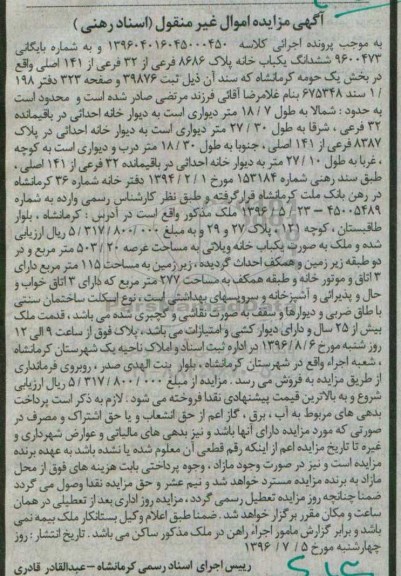 آگهی مزایده اموال غیر منقول (اسناد رهنی)
به موجب پرونده اجرائی کلاسه ۱۳۹۶۰۴۰۱۶۰۴۵۰۰۰۴۵۰ و به شماره بایگانی
۹۶۰۰۴۷۳ ششدانگ یکباب خانه پلاک ۸۶۸۶ فرعی از ۳۲ فرعی از ۱۴۱ اصلی واقع
در بخش یک حومه کرمانشاه که سند آن ذیل ثبت ۳۹۸۷۶ و صفحه ۳۲۳ دفتر ۱۹۸
/ ۱ سند ۶۷۵۳۴۸ بنام غلامرضا آقائی فرزند مرتضی صادر شده است و محدود است
به حدود : شمالا به طول ۷ / ۱۸ متر دیواری است به دیوار خانه احداثی در باقیمانده
۳۲ فرعی ، شرقا به طول ۳۰ / ۲۷ متر دیواری است به دیوار خانه احداثی در پلاک
۸۳۸۷ فرعی از ۱۴۱ اصلی ، جنوبا به طول ۳۰ / ۱۸ متر درب و دیواری است به کوچه
، غربا به طول ۱۰ / ۲۷ متر به دیوار خانه احداثی در باقیمانده ۳۲ فرعی از ۱۴۱ اصلی .
طبق سند رهنی شماره ۱۵۳۱۸۴ مورخ ۱ / ۲ / ۱۳۹۴ دفتر خانه شماره ۳۶ کرمانشاه
در رهن بانک ملت کرمانشاه قرار گرفته و طبق نظر کارشناس رسمی وارده به شماره
۴۵۰۰۵۴۸۹ – ۲۳ / ۵ / ۱۳۹۶ ملک مذکور واقع است در آدرس : کرمانشاه ، بلوار
طاقبستان ، کوچه ۱۳۱ ، پلاک ۲۷ و ۲۹ و به مبلغ ۰۰۰/ ۸۰۰/ ۳۱۷/ ۵ ریال ارزیابی
شده و ملک به صورت یکباب خانه ویلائی به مساحت عرصه ۲۰ / ۵۰۳ متر مربع و در
دو طبقه زیر زمین و همکف احداث گردیده ، زیر زمین به مساحت ۱۱۵ متر مربع دارای
۳ اتاق و موتور خانه و طبقه همکف به مساحت ۲۷۷ متر مربع که دارای ۳ اتاق خواب و
حال و پذیرائی و آشپزخانه و سرویسهای بهداشتی است ، نوع اسکلت ساختمان سنتی
با طاق ضربی و دیوارها و سقف به صورت نقاشی و گچبری شده می باشد ، قدمت ملک
بیش از ۲۵ سال و دارای دیوار کشی و امتیازات می باشد ، پلاک فوق از ساعت ۹ الی ۱۲
روز شنبه مورخ ۶ / ۸ / ۱۳۹۶ در اداره ثبت اسناد و املاک ناحیه یک شهرستان کرمانشاه
، شعبه اجراء واقع در شهرستان کرمانشاه ، بلوار بنت الهدی صدر ، روبروی فرمانداری
از طریق مزایده به فروش می رسد . مزایده از مبلغ ۰۰۰/ ۸۰۰/ ۳۱۷/ ۵ ریال ارزیابی
شروع و به بالاترین قیمت پیشنهادی نقدا فروخته می شود : لازم به ذکر است پرداخت
بدهی های مربوط به آب ، برق ، گاز اعم از حق انشعاب و یا حق اشتراک و مصرف در
صورتی که مورد مزایده دارای آنها باشد و نیز بدهی های مالیاتی و عوارض شهرداری و
غیره تا تاریخ مزایده اعم از اینکه رقم قطعی آن معلوم شده یا نشده باشد به عهده برنده
مزایده است و نیز در صورت وجود مازاد ، وجوه پرداختی بابت هزینه های فوق از محل
مازاد به برنده مزایده مسترد خواهد شد و نیم عشر و حق مزایده نقدا وصول می گردد
ضمنا چنانچه روز مزایده تعطیل رسمی گردد ، مزایده روز اداری بعد از تعطیلی در همان
ساعت و مکان مقرر برگزار خواهد شد . ضمنا طبق اعلام وکیل بستانکار ملک بیمه نمی
باشد و برابر گزارش مامور اجراء راهن در ملک مذکور ساکن می باشد . تاریخ انتشار : روز
چهارشنبه مورخ ۵ / ۷ / ۱۳۹۶
رییس اجرای اسناد رسمی کرمانشاه – عبدالقادر قادری